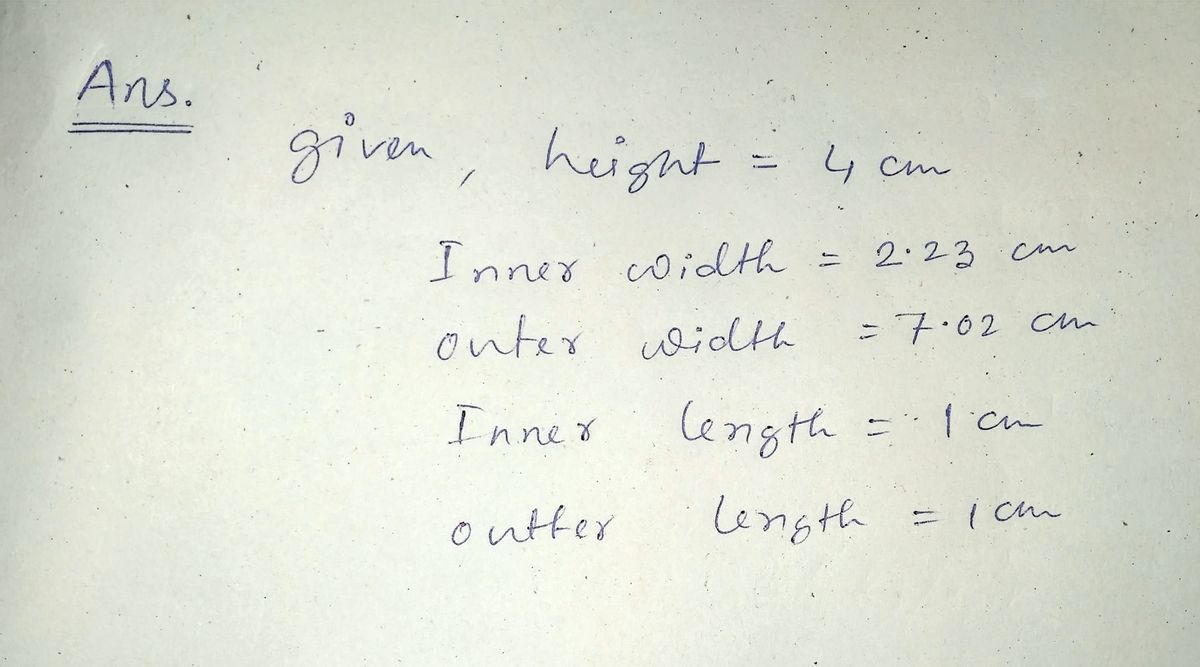 Ans.
given, height = 4 cm
Inner width = 2.23 cm
outer width = 7.02 cm
Inner length = 1 cm
outter length = 1 cm